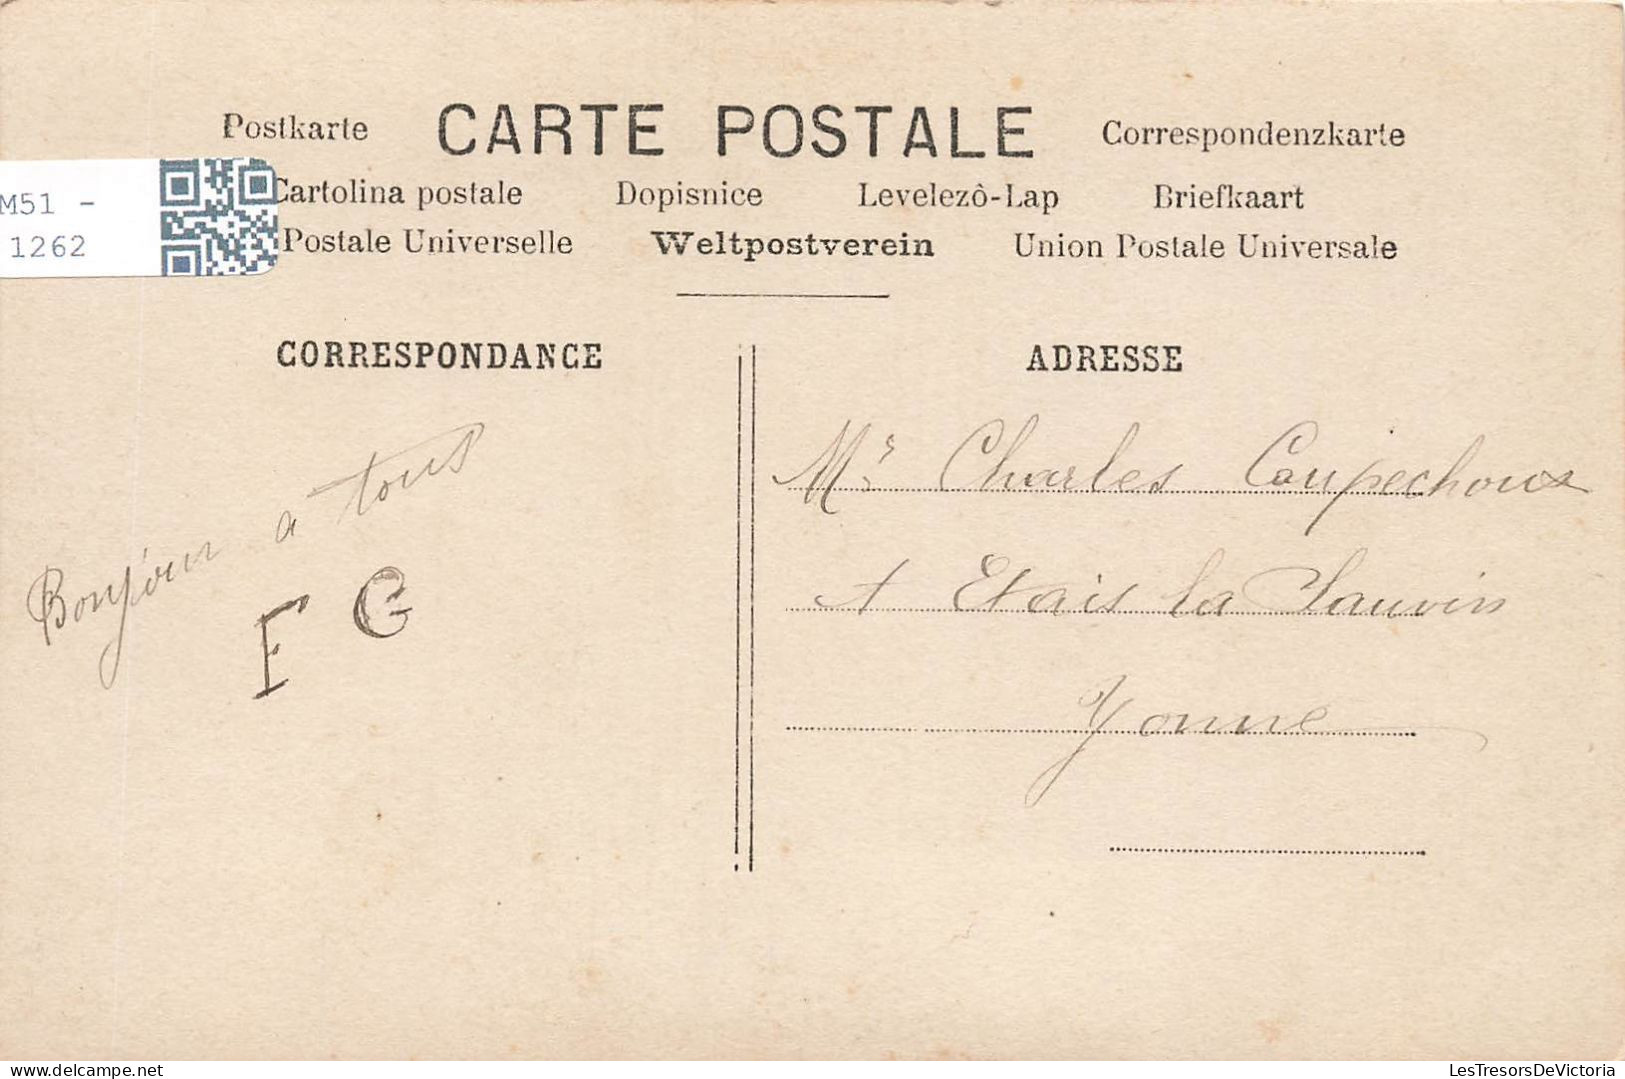 Postkarte CARTE POSTALE Correspondenzkarte
Cartolina postale Dopisnice Levelezô-Lap Briefkaart
Postale Universelle Weltpostverein Union Postale Universale
M51 -
1262
CORRESPONDANCE
Bonjour a tous
F G
ADRESSE
Mr Charles Coupechoux
A Etais la Sauvin
Yonne
LesTresorsDeVictoria